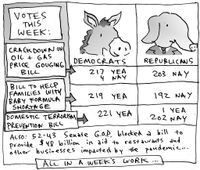 VOTES
THIS
WEEK:
DEMOCRATS
REPUBLICANS
CRACKDOWN ON
OIL & GAS
PRICE GOUGING
BILL
217 YEA
4 NAY
203 NAY
BILL TO HELP
FAMILIES WITH
BABY FORMULA
SHORTAGE
219 YEA
192 NAY
DOMESTIC TERRORISM
PREVENTION BILL
221 YEA
1 YEA
202 NAY
ALSO: 52-43 Senate G.O.P. blocked a bill to
provide $48 billion in aid to restaurants and
other businesses impacted by the pandemic...
ALL IN A WEEK'S WORK...